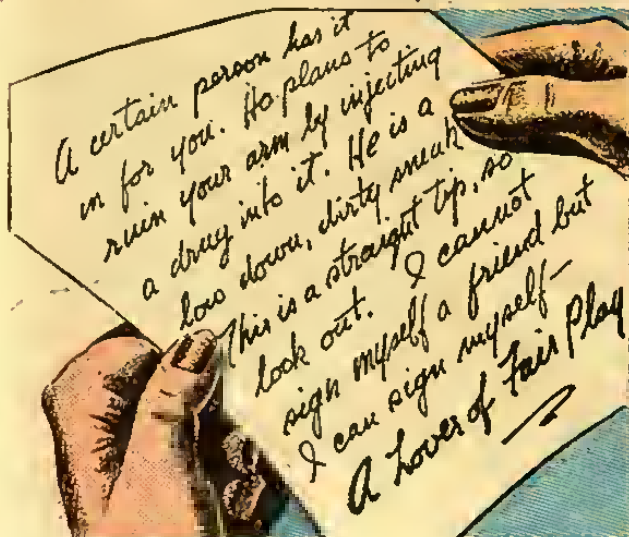 A certain person has it
in for you. He plans to
ruin your arm by injecting
a drug into it. He is a
low down, dirty sneak
This is a straight tip, so
look out. I cannot
sign myself a friend but
I can sign myself—
A Lover of Fair Play